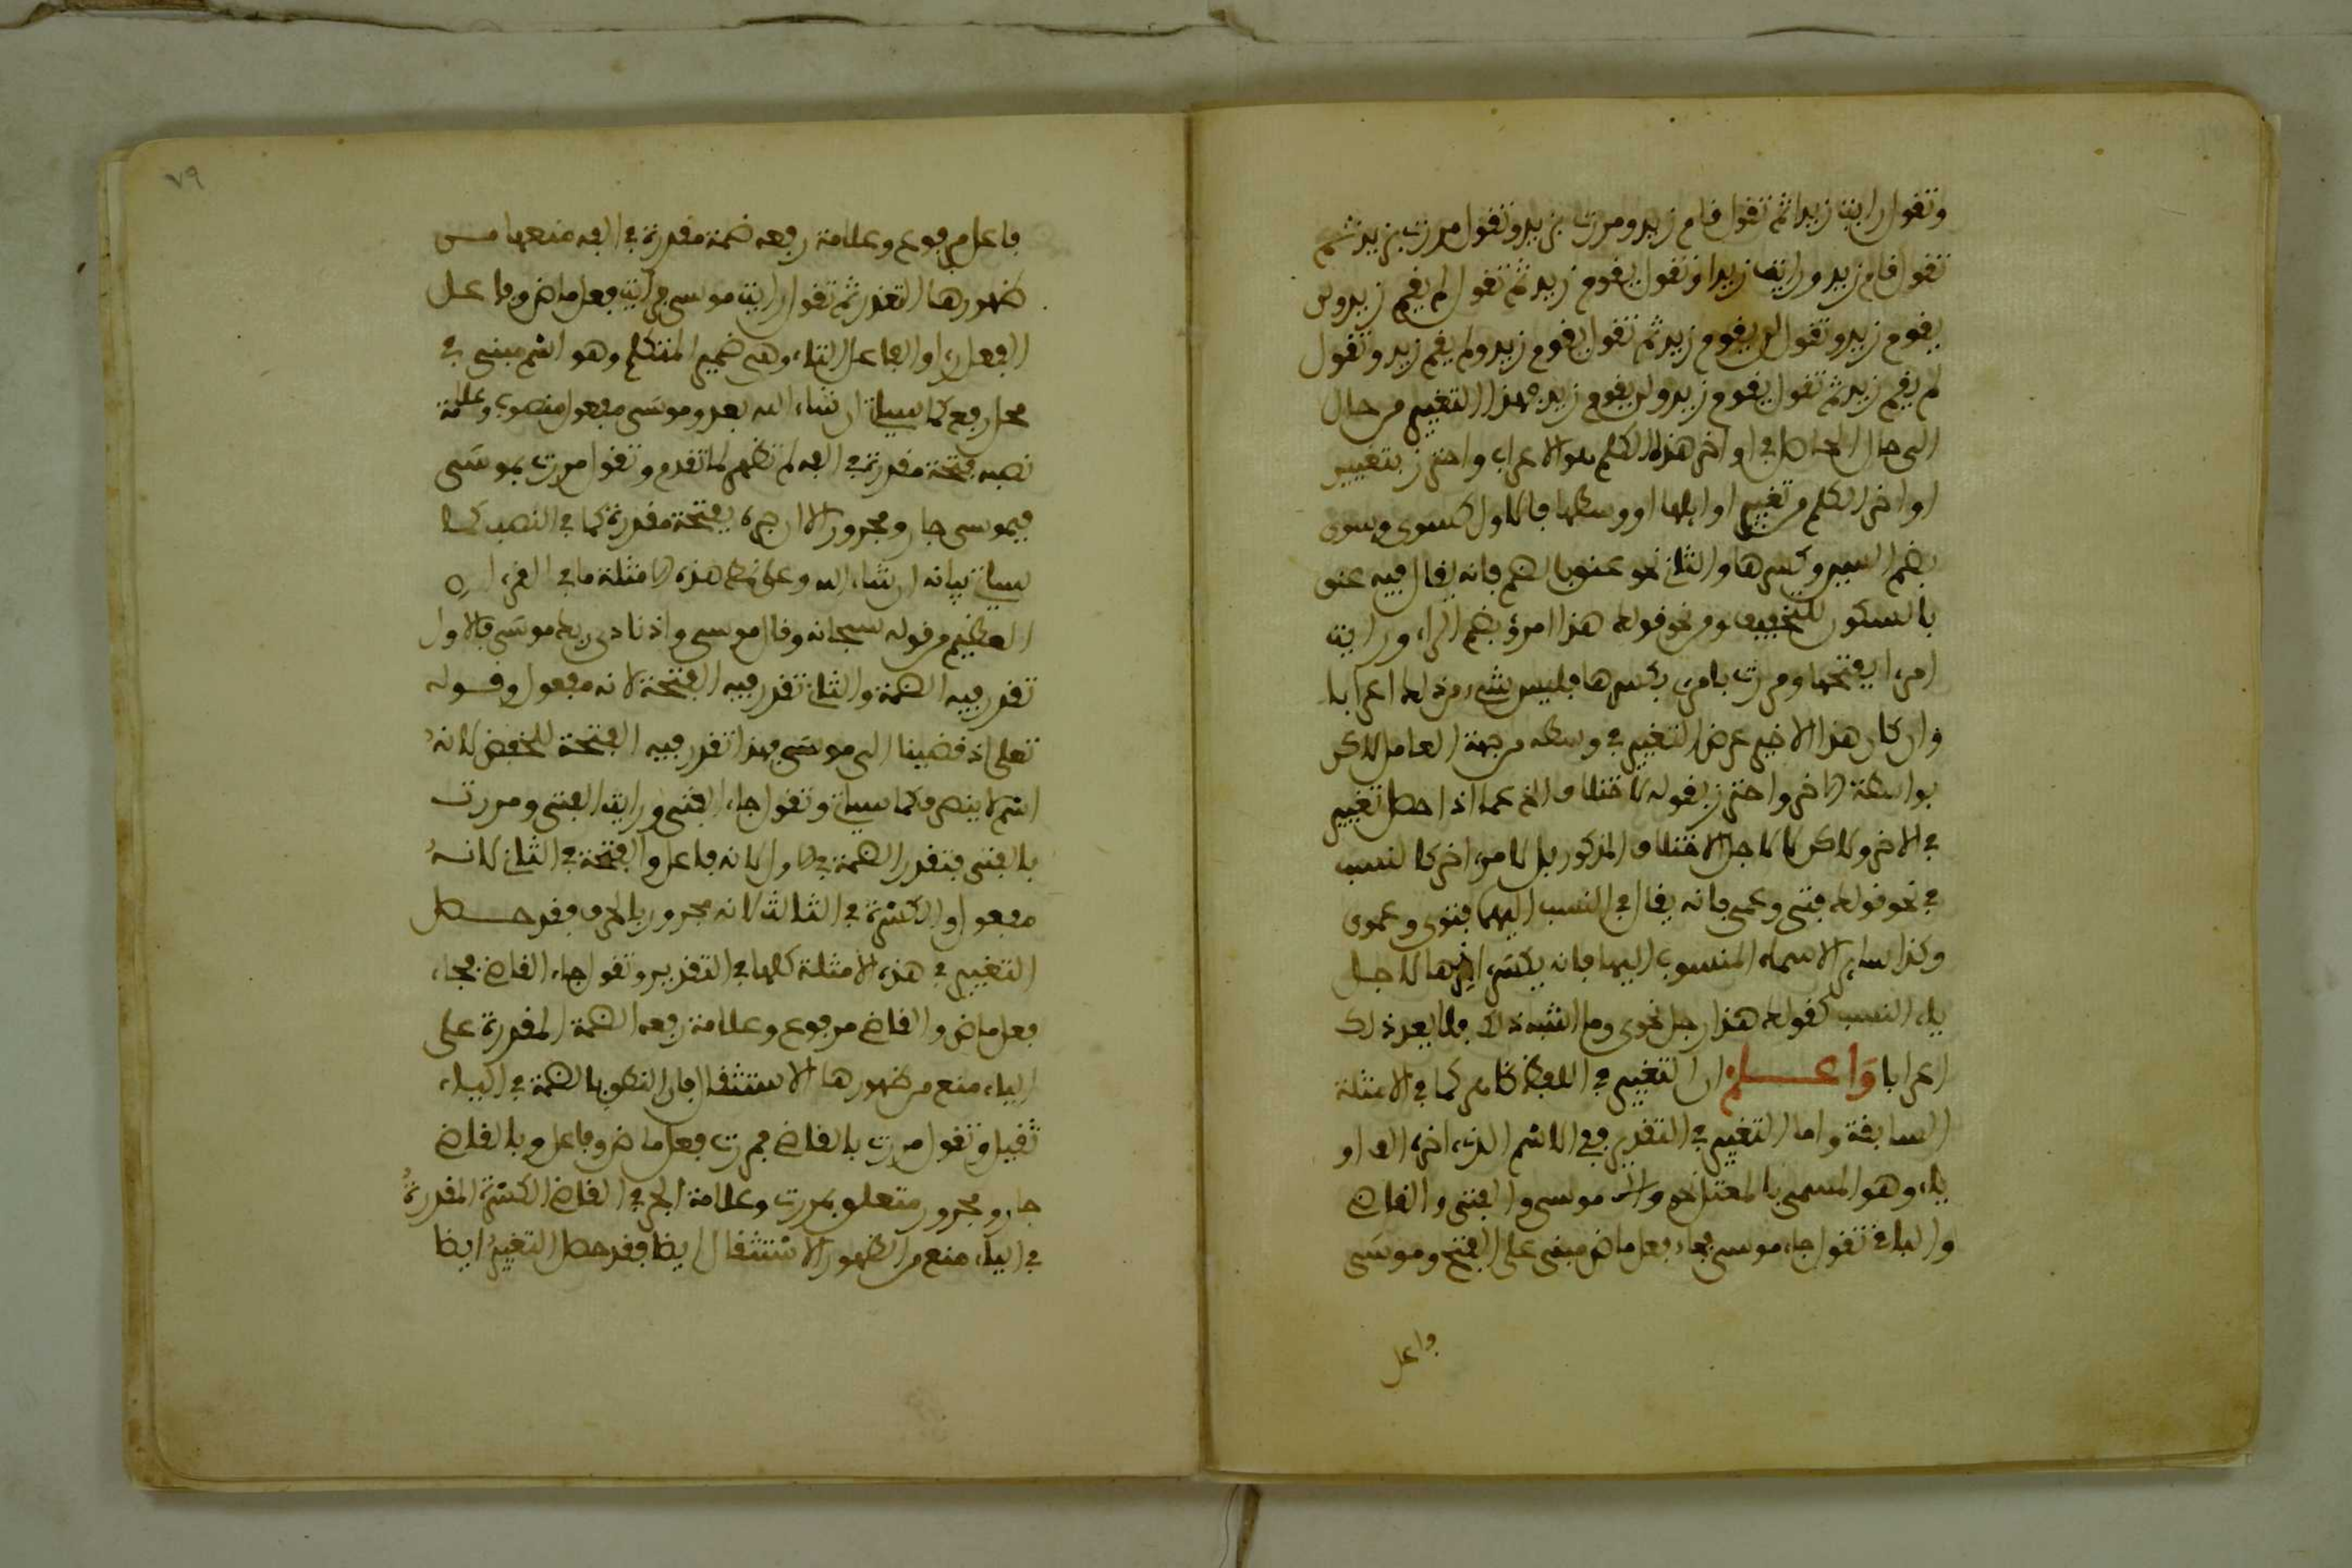 وتقول رايت زيدا ثم تقول قام زيد ومررت بزيد وتقول مررت بزيد ثم
تقول قام زيد ورايت زيدا وتقول يقوم زيد ثم تقول لم يقم زيد ولن
يقوم زيد وتقول لن يقوم زيد ثم تقول يقوم زيد ولم يقم زيد وتقول
لم يقم زيد ثم تقول يقوم زيد ولن يقوم زيد فهذا التغيير من حال
الى حال الحاصل في اواخر هذه الكلم هو الاعراب واحترز بتغيير
اواخر الكلم من تغيير اوايلها او وسطها فالاول كسوى وسوى
بضم السين وكسرها والثاني نحو عنق بالضم فانه يقال فيه عنق
بالسكون للتخفيف ومن نحو قولك هذا امرؤ بضم الراء ورايت
امرءا بفتحها ومررت بامرئ بكسرها فليس شيء من ذلك اعرابا
وان كان هذا الاخير عرض التغيير في وسطه من جهة العامل لاكن
بواسطة الاخر واحترز بقوله لاختلاف الخ عما اذا حصل تغيير
في الاخر ولاكن لا لاجل الاختلاف المذكور بل لامر اخر كالنسب
في نحو قولك فتى وعمى فانه يقال في النسب اليهما فتوى وعموى
وكذا ساير الاسماء المنسوب اليها فانه يكسر اخرها لاجل
ياء النسب كقولك هذا رجل نحوى وما اشبه ذلك فلا يعد ذلك
اعرابا واعلم ان التغيير في اللفظ ظاهر كما في الامثلة
السابقة واما التغيير في التقدير ففي الاسم الذي اخره الف او
ياء وهو المسمى بالمعتل نحو موسى والفتى والقاضي
والباغ تقول جاء موسى فجاء فعل ماض مبني على الفتح وموسى
فاعل
٧٩
فاعل مرفوع وعلامة رفعه ضمة مقدرة في الفه منعها من
ظهورها التعذر ثم تقول رايت موسى فرايت فعل ماض وفاعل
الفعل راى والفاعل التاء وهى ضمير المتكلم وهو اسم مبني في
محل رفع كما سياتي ان شاء الله بعد وموسى مفعول منصوب وعلامة
نصبه فتحة مقدرة في الفه لم تظهر لما تقدم وتقول مررت بموسى
فبموسى جار ومجرور الا ان جره بفتحة مقدرة كما في النصب كما
سياتي بيانه ان شاء الله وعلى نمط هذه الامثلة ما في القرءان
العظيم من قوله سبحانه وقال موسى واذ نادى ربك موسى فالاول
تقدر فيه الضمة والثاني تقدر فيه الفتحة لانه مفعول وقوله
تعلى اذ قضينا الى موسى فهذا تقدر فيه الفتحة للخفض لانه
اسم لا ينصرف كما سياتي وتقول جاء الفتى ورايت الفتى ومررت
بالفتى فتقدر الضمة في الاول لانه فاعل والفتحة في الثاني لانه
مفعول والكسرة في الثالث لانه مجرور بالحرف فقد حصل
التغيير في هذه الامثلة كلها في التقدير وتقول جاء القاضي فجاء
فعل ماض والقاضي مرفوع وعلامة رفعه الضمة المقدرة على
الياء منع من ظهورها الاستثقال فان النطق بالضمة في الياء
ثقيل وتقول مررت بالقاضي فمررت فعل ماض وفاعل وبالقاضي
جار ومجرور متعلق بمررت وعلامة الجر في القاضي الكسرة المقدرة
في الياء منع من الظهور الاستثقال ايضا فقد حصل التغيير ايضا